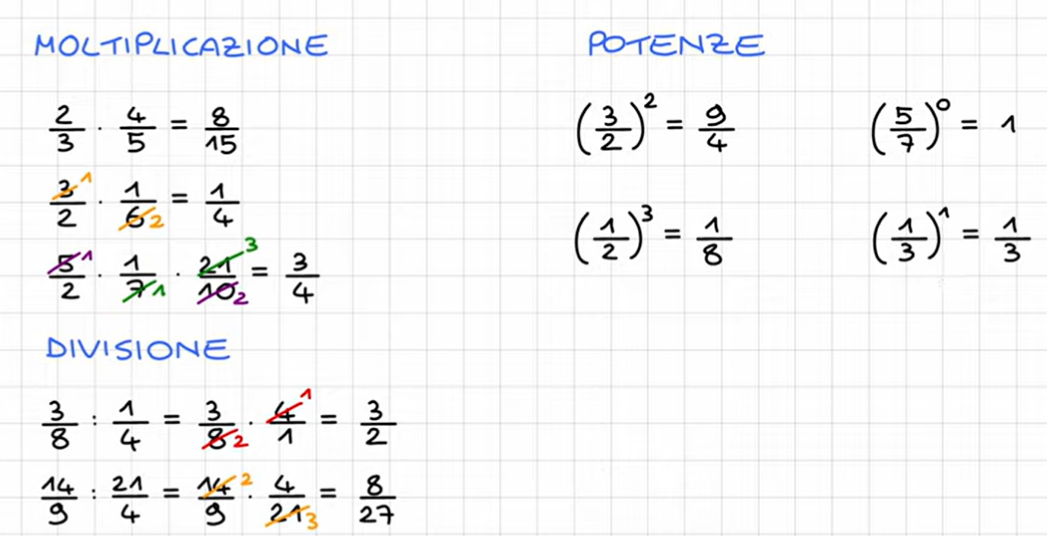 MOLTIPLICAZIONE
2/3 · 4/5 = 8/15
3̸¹/2 · 1/6̸₂ = 1/4
5̸¹/2 · 1/7̸₁ · 2̸1̸³/1̸0̸₂ = 3/4
DIVISIONE
3/8 : 1/4 = 3/8̸₂ · 4̸¹/1 = 3/2
14/9 : 21/4 = 1̸4̸²/9 · 4/2̸1̸₃ = 8/27
POTENZE
(3/2)² = 9/4 (5/7)⁰ = 1
(1/2)³ = 1/8 (1/3)¹ = 1/3